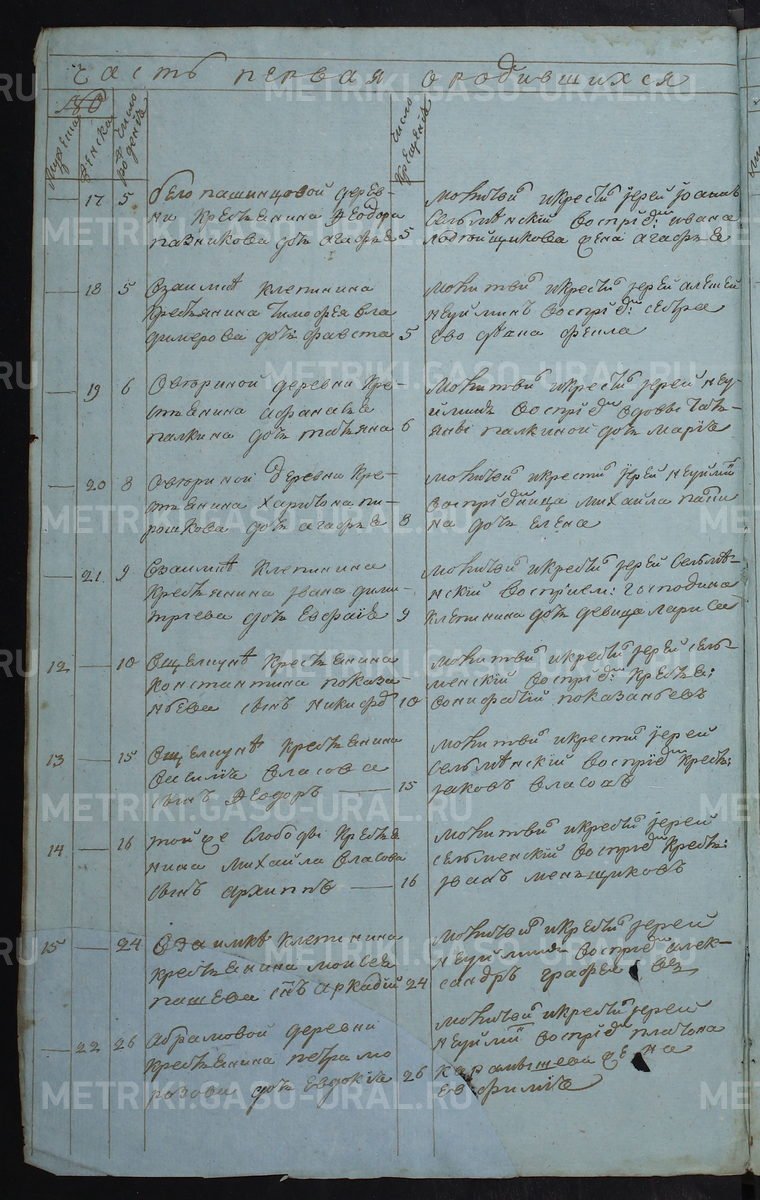 часть первая о родившихся
№
мужеска
женска
число рождениѧ
число крещениѧ
17 5
бело пашинцовой дерев-
ни крестьянина Феодора
пазникова дочь агафья 5
молитвил и крестил іерей іоаннъ
Сельменскій воспріем: ивана
жена агафья
18 5
Взаимке клепинина
крестьянина Тимофея вла
димерова дочь фавста 5
молитвил и крестил іерей алексей
неуйминъ воспріем: сестра
ево фекла
19 6
Овториной деревни кре-
стьянина афанасья
палкина дочь татьяна 6
молитвил и крестил іерей неу-
йминъ воспріем вдовы тать-
яны палкиной дочь марія
20 8
Овториной деревни кре-
стьянина харитона пи-
рошкова дочь агафья 8
молитвил и крестил іерей неуймин
воспріемница михайла
на дочь елена
21 9
Взаимке клепинина
крестьянина івана дими-
тріева дочь Евфалія 9
молитвил и крестил іерей Сельме-
нскій воспріем: господина
клепинина дочь девица лариса
12 10
Вщелкуне крестьянина
константина показа
ньева сынъ никифоръ 10
молитвил и крестил іерей сель-
менскій воспріем: крестья:
вонифатій показаньевъ
13 15
Вщелкуне крестьянина
Василія власова
сынъ Феодоръ 15
молитвил и крестил іерей
Сельменскій воспріем кресть:
іаковъ власовъ
14 16
той же слободы крестья
нина михайла власова
сынъ архиппъ 16
молитвил и крестил іерей
сельменскій воспріем кресть:
іванъ меньщиковъ
15 24
Взаимке клепинина
крестьянина моисея
пашева сынъ аркадій 24
молитвил и крестил іерей
неуйминъ воспріем алек-
сандръ
22 26
абрамовой деревни
крестьянина петра мо
розова дочь евдокія 26
молитвил и крестил іерей
неуймин воспріем платона
карамышева жена
евфимія
METRIKI.GASO-URAL.RU